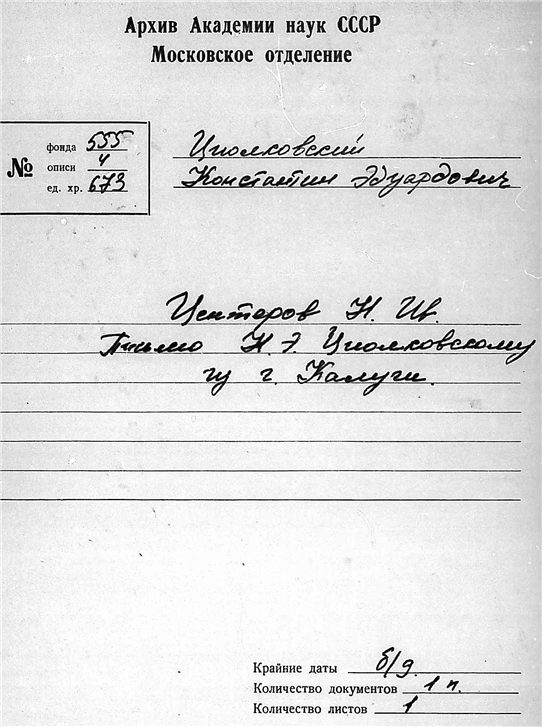 Архив Академии наук СССР
Московское отделение
№
фонда 555
описи 4
ед. хр. 673
Циолковский
Константин Эдуардович
Центеров Н. Ив.
Письмо К. Э. Циолковскому
из г. Калуги.
Крайние даты б/д.
Количество документов 1 п.
Количество листов 1